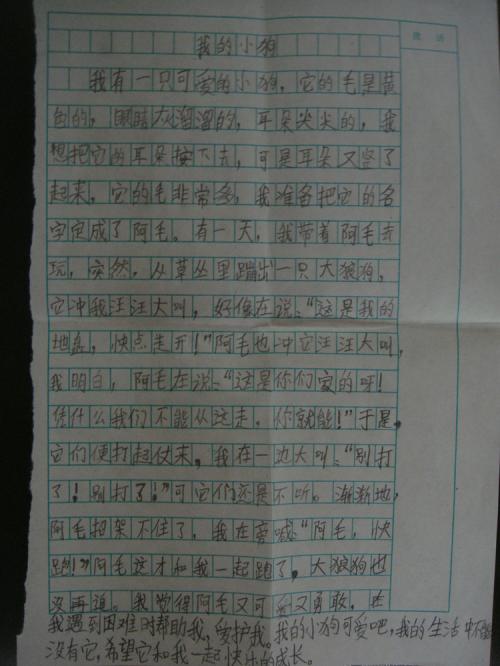 我的小狗
批语
我有一只可爱的小狗，它的毛是黄
色的，眼睛灰溜溜的，耳朵尖尖的，我
想把它的耳朵按下去，可是耳朵又竖了
起来，它的毛非常多，我准备把它的名
字定成了阿毛。有一天，我带着阿毛去
玩，突然，从草丛里蹦出一只大狼狗，
它冲我汪汪大叫，好像在说：“这是我的
地盘，快点走开！”阿毛也冲它汪汪大叫，
我明白，阿毛在说：“这是你们家的呀！
凭什么我们不能从这走，你就能！”于是，
它们便打起仗来，我在一边大叫：“别打
了！别打了！”可它们还是不听。渐渐地，
阿毛招架不住了，我在旁喊：“阿毛，快
跑！”阿毛这才和我一起跑了，大狼狗也
没再追。我觉得阿毛又可爱又勇敢，在
我遇到困难时帮助我，爱护我。我的小狗可爱吧，我的生活中不能
没有它，希望它和我一起快乐的成长。